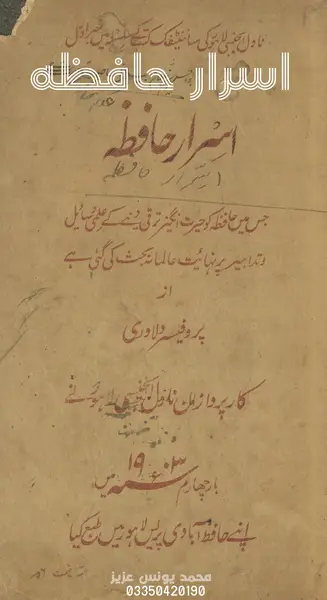 ناول ایجنسی لاہور کی سائنٹیفک کتب کے سلسلہ میں نمبر اول
اسرار حافظہ
اسرار حافظہ
اسرار حافظہ
جس میں حافظہ کو حیرت انگیز ترقی دینے کے علمی وسائیل
و تدابیر پر نہائیت عالمانہ بحث کی گئی ہے
از
پروفیسر دلاوری
کارپردازان ناول ایجنسی لاہور نے
بار چہارم سنہ ۱۹۰۳ء میں
اپنے حافظ آبادی پریس لاہور میں طبع کیا
محمد یونس عزیز
03350420190